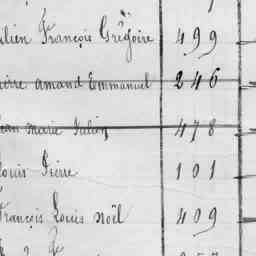 François Grégoire 499
amand Emmanuel 246
marie Julien 478
Louis Pierre 101
François Louis Noël 409